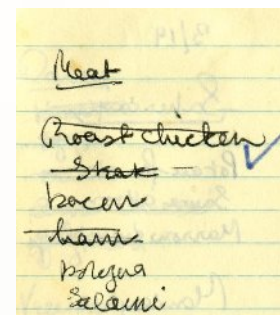 Meat
Roast chicken
Steak
bacon
ham
bologna
Salami